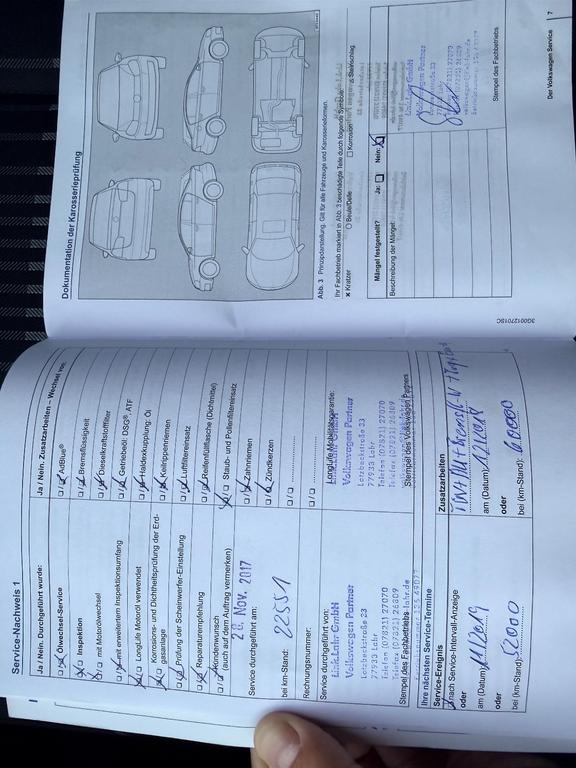 Service-Nachweis 1
Ja / Nein. Durchgeführt wurde:
Ölwechsel-Service
Inspektion
mit Motorölwechsel
mit erweitertem Inspektionsumfang
LongLife Motoröl verwendet
Korrosions- und Dichtheitsprüfung der Erd-
gasanlage
Prüfung der Scheinwerfer-Einstellung
Reparaturempfehlung
Kundenwunsch
(auch auf dem Auftrag vermerken)
Service durchgeführt am:
20. Nov. 2017
bei km-Stand:
22551
Rechnungsnummer:
Service durchgeführt von:
Link Lahr GmbH
Volkswagen Partner
Lotzbeckstraße 23
77933 Lahr
Telefon (07821) 27070
Telefax (07821) 26809
Stempel des Fachbetriebs
Ja / Nein. Zusatzarbeiten – Wechsel von:
AdBlue®
Bremsflüssigkeit
Dieselkraftstofffilter
Getriebeöl: DSG®, ATF
Haldexkupplung: Öl
Keilrippenriemen
Luftfiltereinsatz
Reifenfüllflasche (Dichtmittel)
Staub- und Pollenfiltereinsatz
Zahnriemen
Zündkerzen
LongLife Mobilitätsgarantie:
Link Lahr GmbH
Volkswagen Partner
Lotzbeckstraße 23
77933 Lahr
Telefon (07821) 27070
Telefax (07821) 26809
Stempel des Volkswagen Partners
Ihre nächsten Service-Termine
Service-Ereignis
nach Service-Intervall-Anzeige
oder
am (Datum):
11/2019
oder
bei (km-Stand):
52000
Zusatzarbeiten
am (Datum):
oder
bei (km-Stand):
60000
Dokumentation der Karosserieprüfung
Abb. 3 Prinzipdarstellung. Gilt für alle Fahrzeuge und Karosserieformen.
Ihr Fachbetrieb markiert in Abb. 3 beschädigte Teile durch folgende Symbole:
Kratzer
Beule/Delle
Korrosion
Steinschlag
Mängel festgestellt?
Ja:
Nein:
Beschreibung der Mängel:
Link Lahr GmbH
Volkswagen Partner
Stempel des Fachbetriebs
3G0012701SC
Der Volkswagen Service
7